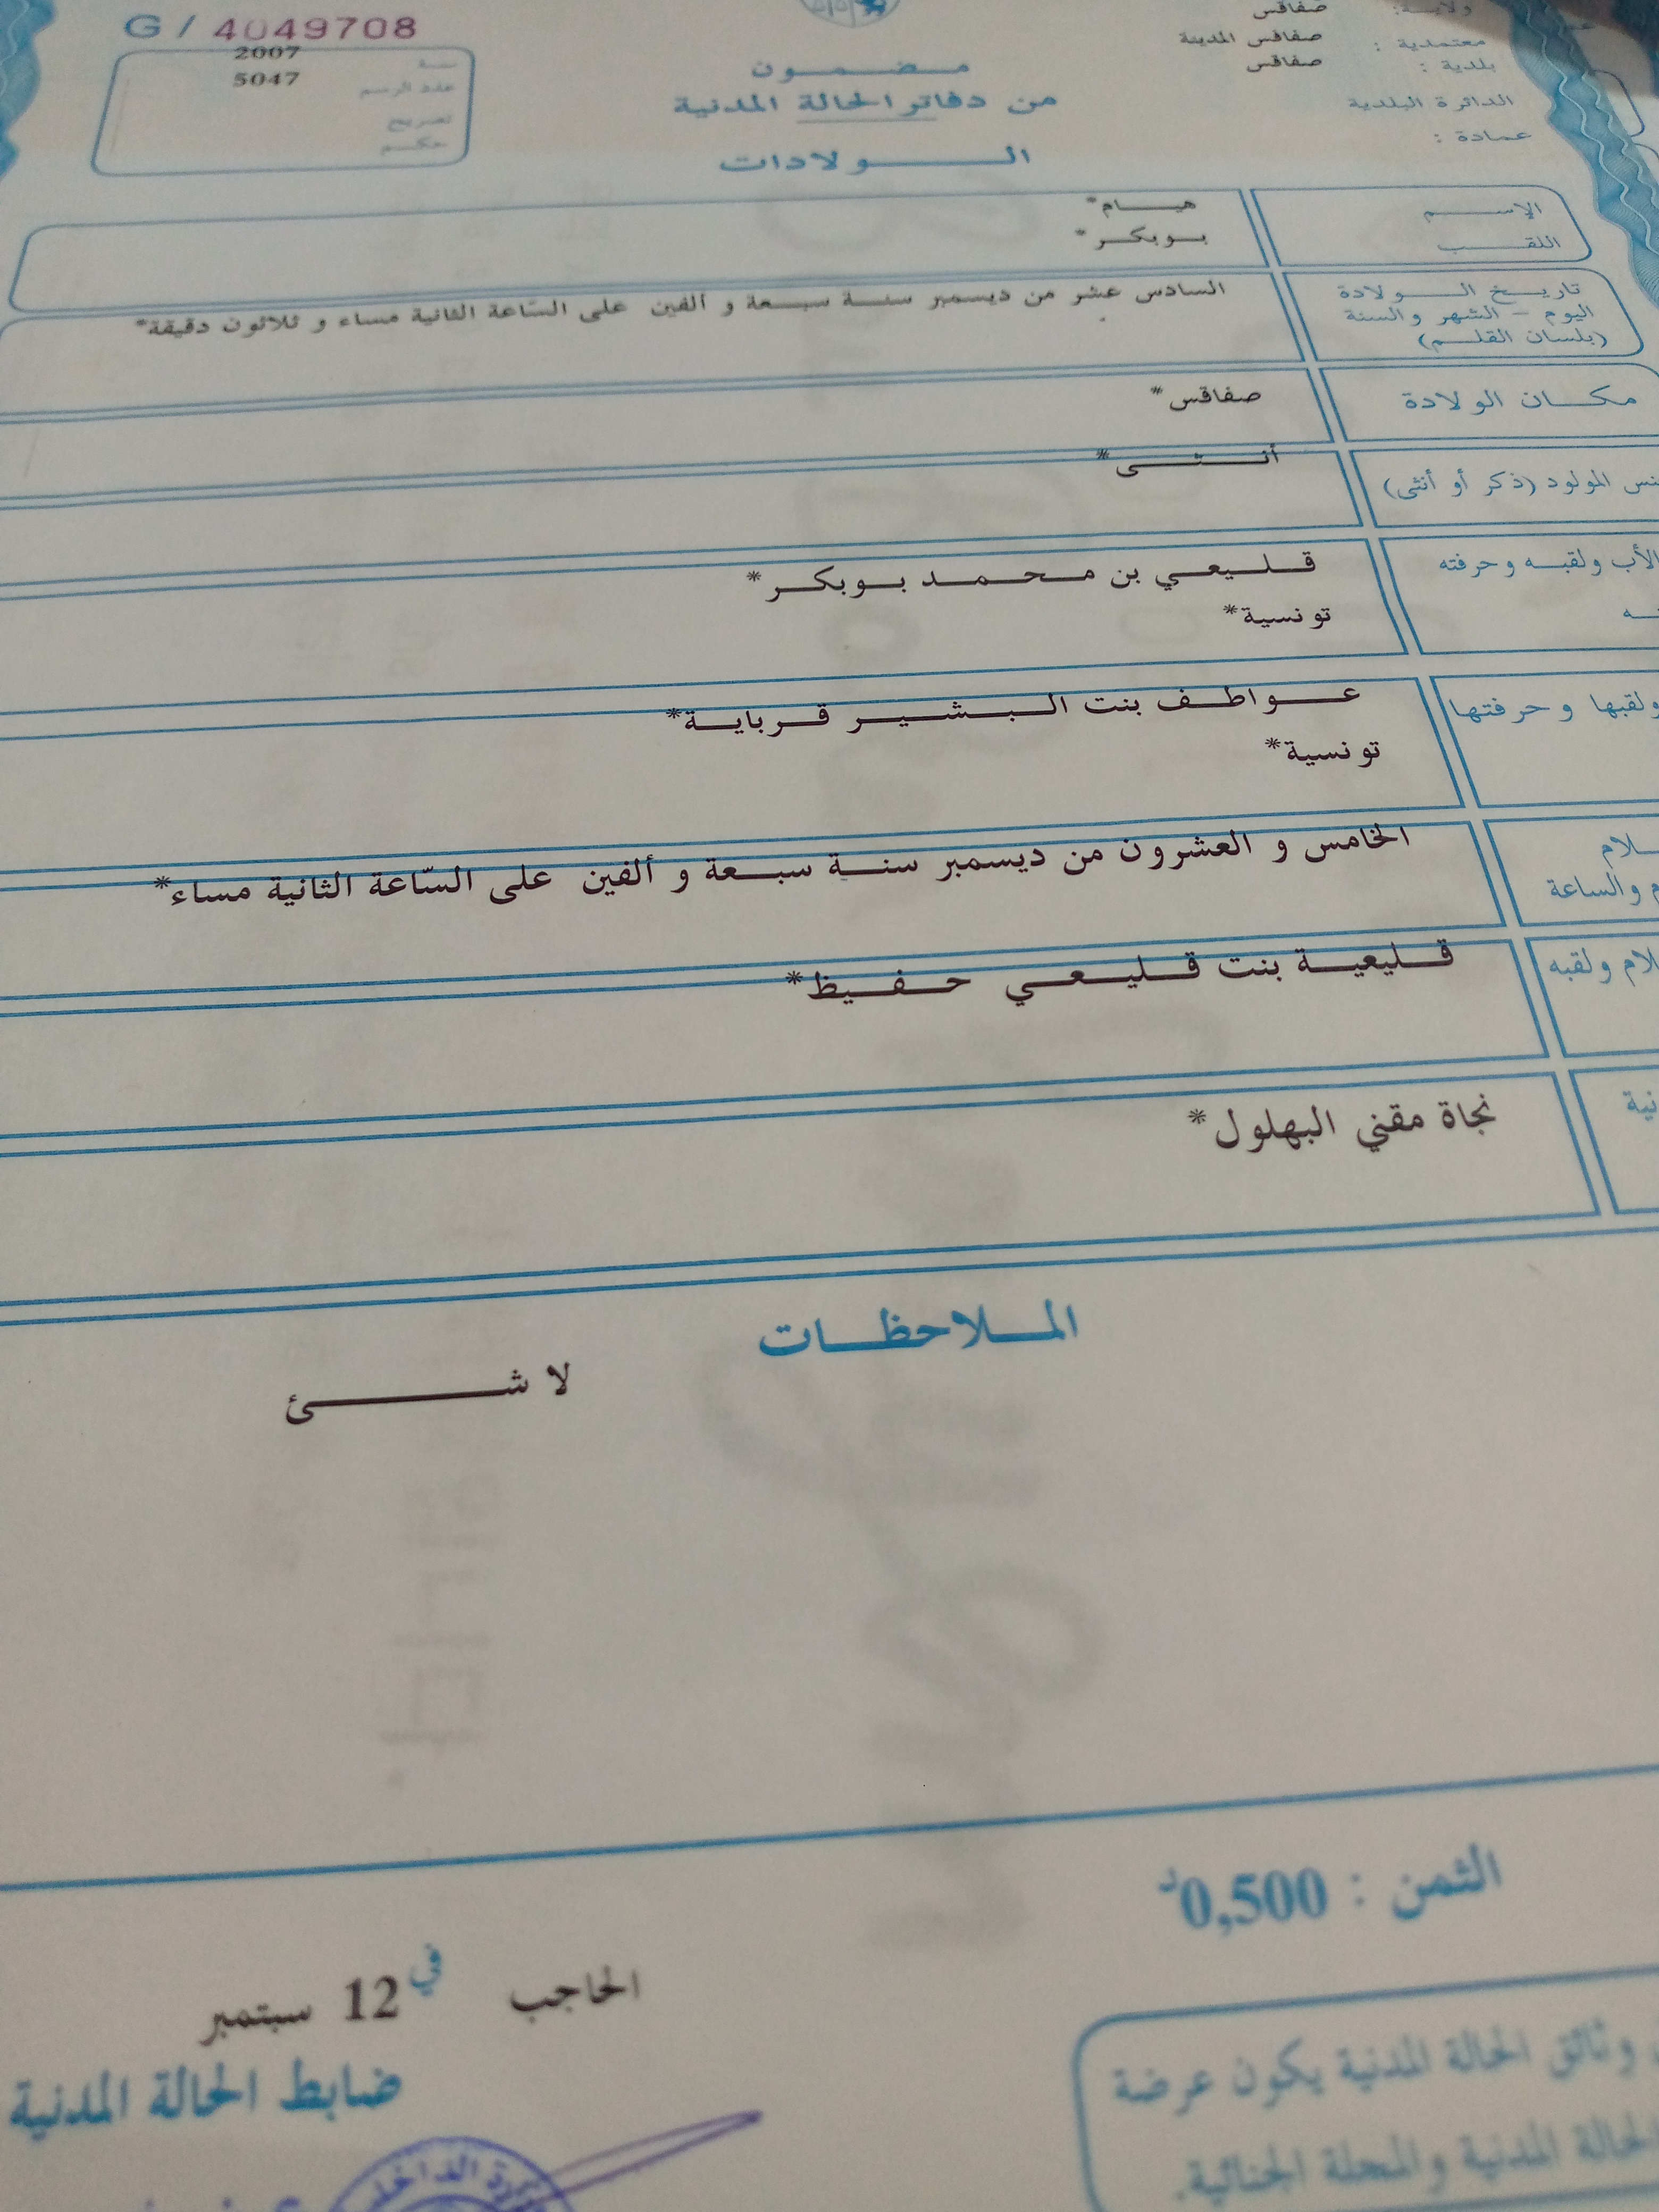 G / 4049708
ولايـة: صفاقس
معتمدية : صفاقس المدينة
بلدية : صفاقس
الدائرة البلدية
عمادة :
سنة 2007
عدد الرسم 5047
تصريح
حكم
مضمون
من دفاتر الحالة المدنية
الولادات
الإسم هيام*
اللقب بوبكر*
تاريخ الولادة
اليوم - الشهر والسنة
(بلسان القلم)
السادس عشر من ديسمبر سنة سبعة و ألفين على السّاعة الثانية مساء و ثلاثون دقيقة*
مكان الولادة صفاقس*
نس المولود (ذكر أو أنثى) أنثى*
الأب ولقبه وحرفته قليعي بن محمد بوبكر*
ـه تونسية*
ولقبها وحرفتها عواطف بنت البشير قرباية*
تونسية*
ـلام الخامس و العشرون من ديسمبر سنة سبعة و ألفين على السّاعة الثانية مساء*
م والساعة
ـلام ولقبه قليعية بنت قليعي حفيظ*
نية نجاة مقني البهلول*
الملاحظات
لا شئ
الثمن : 0,500د
الحاجب في 12 سبتمبر
ضابط الحالة المدنية
وثائق الحالة المدنية يكون عرضة
الحالة المدنية والمجلة الجنائية.